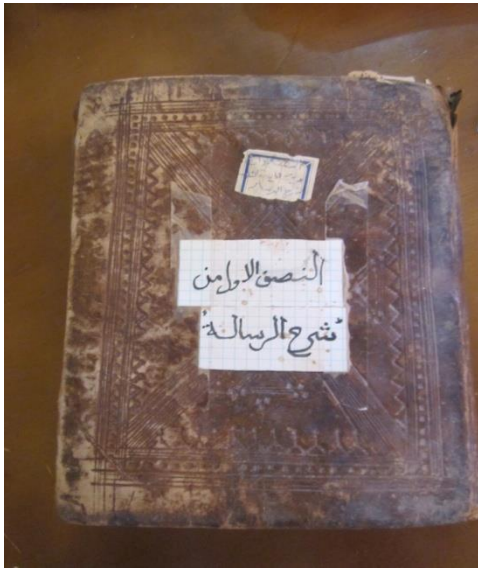 النصف الاول من
"شرح الرسالة"